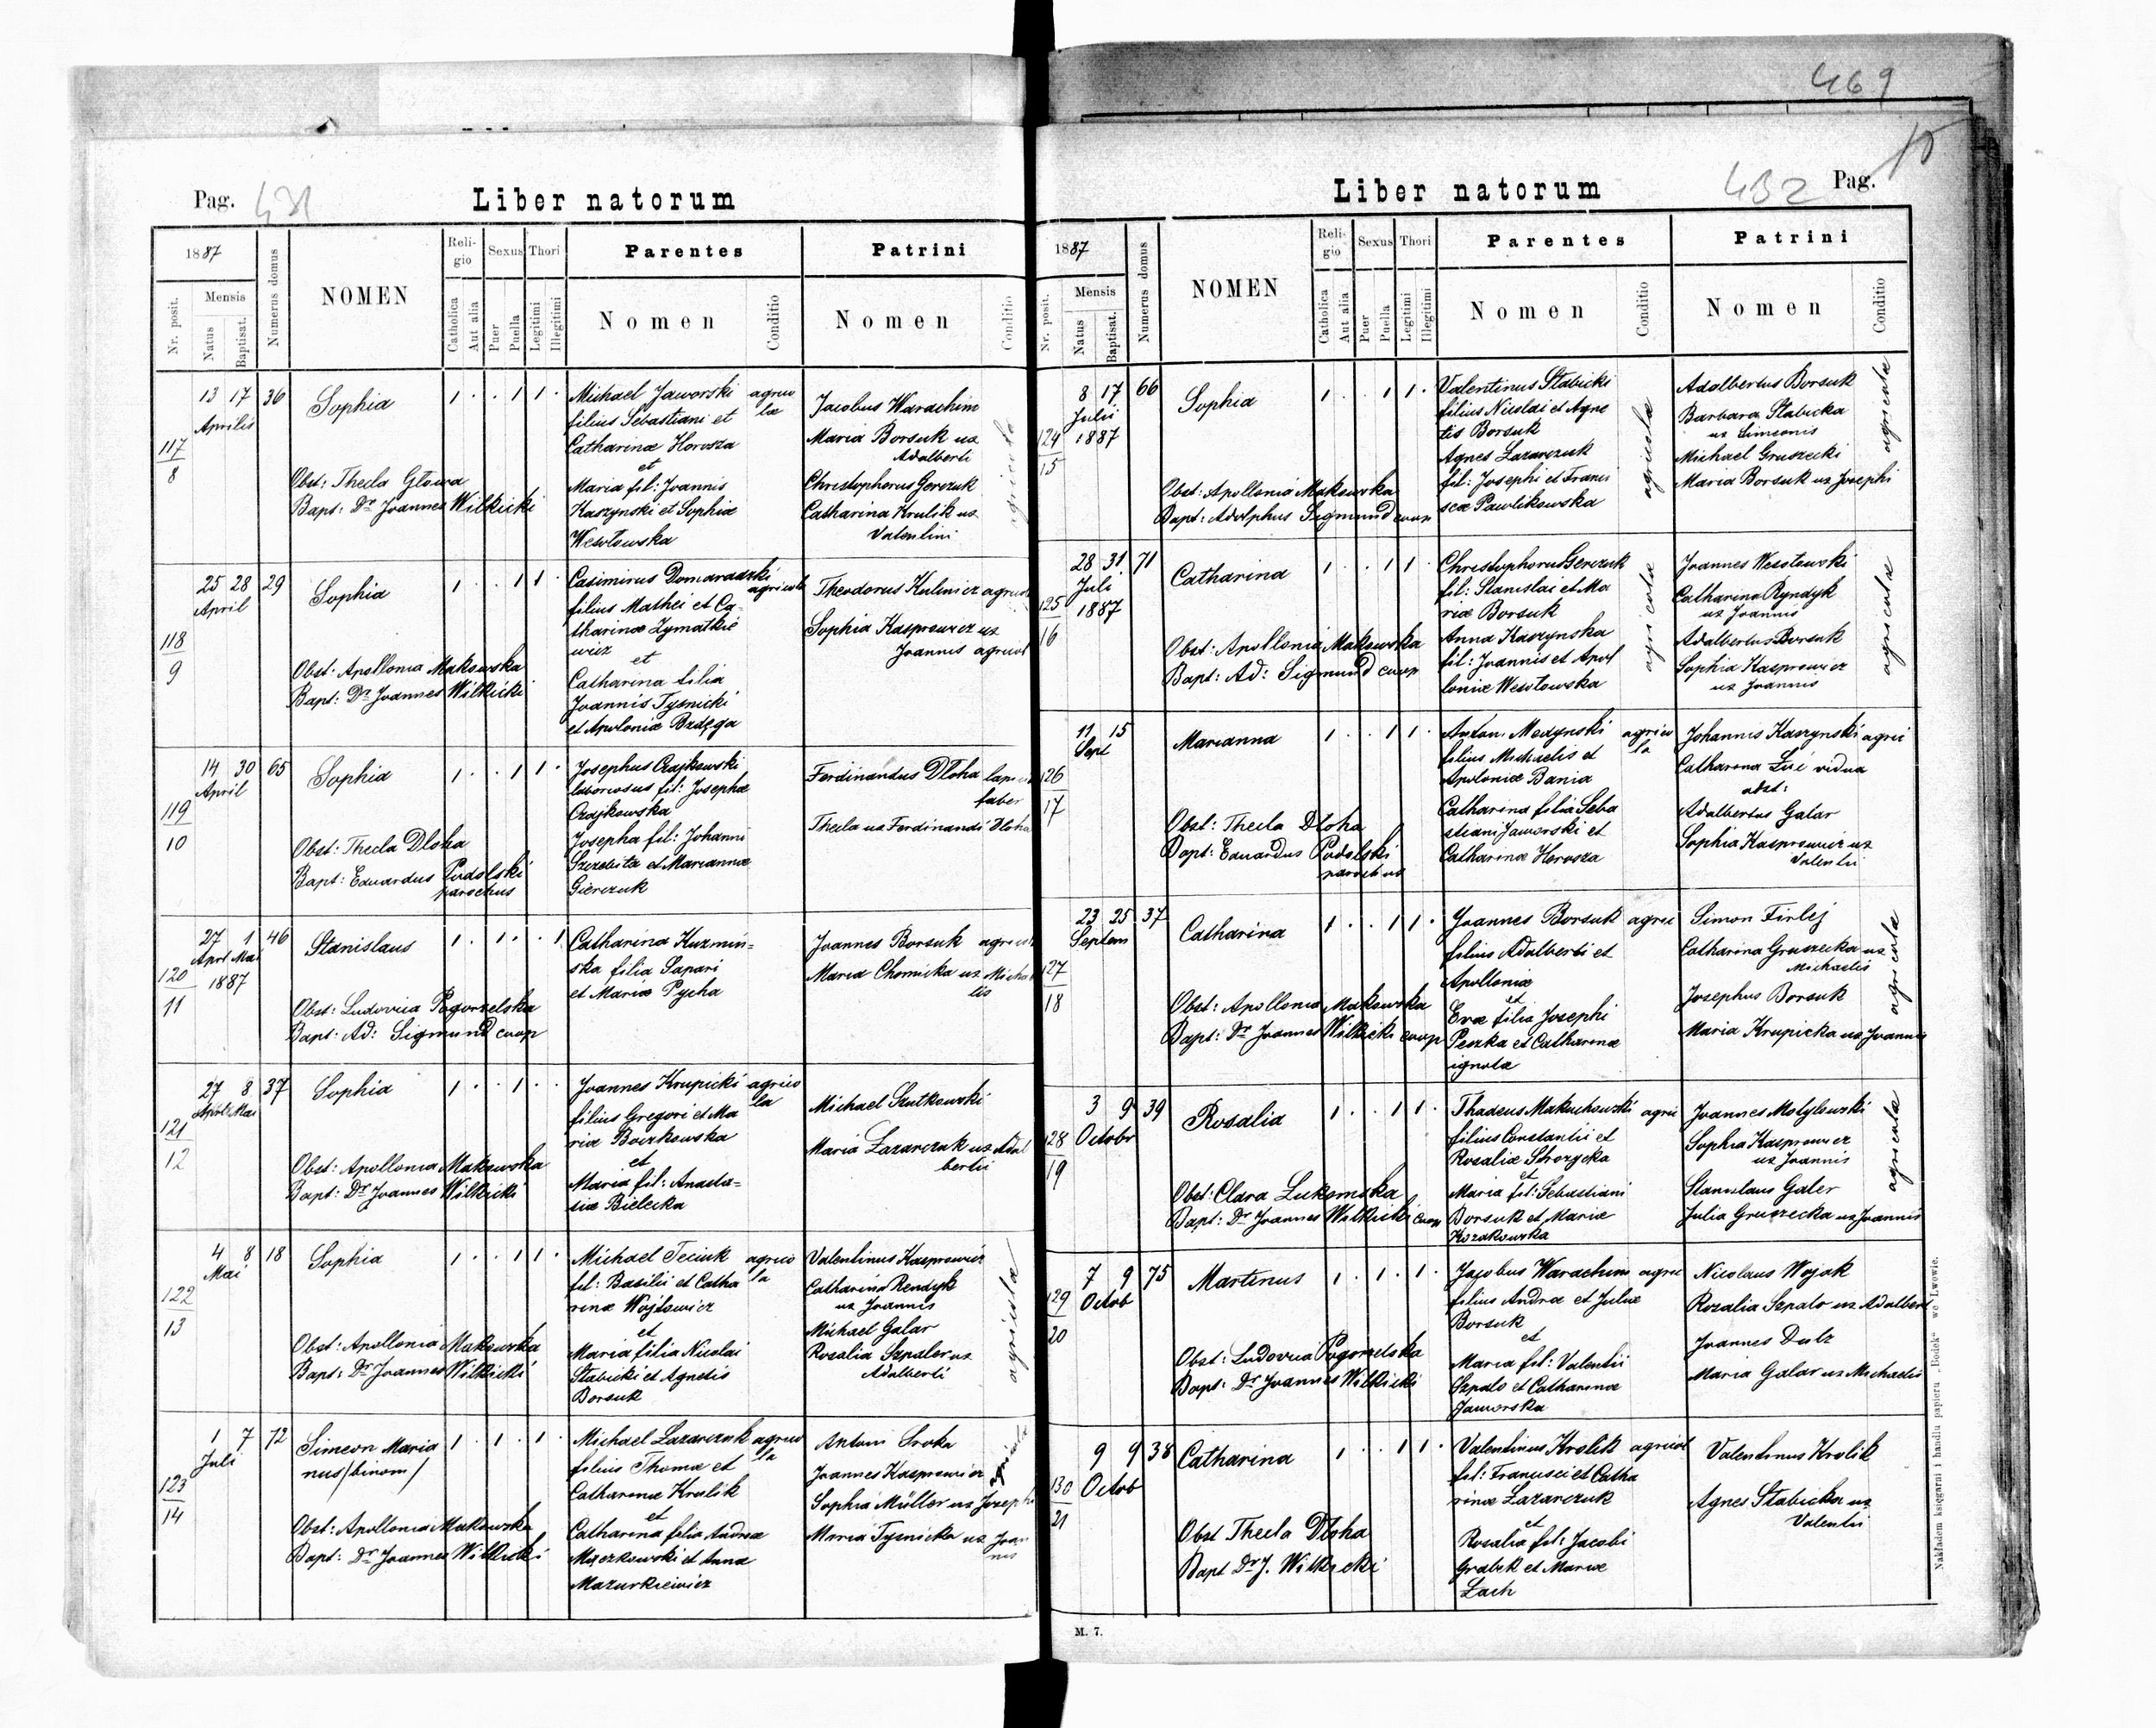 469
15
Pag. 431
Liber natorum
1887
Nr. posit.
Mensis
Natus
Baptisat.
Numerus domus
NOMEN
Religio
Catholica
Aut alia
Sexus
Puer
Puella
Thori
Legitimi
Illegitimi
Parentes
Nomen
Conditio
Patrini
Nomen
Conditio
117
8
13 17 36
Aprilis
Sophia
1 . . 1 1 .
Obst: Thecla Głowa
Bapt: Dr Joannes Wilkicki
Michael Jaworski agrico
la
filius Sebastiani et
Catharinæ Horosza
et
Maria fil: Joannis
Kaszynski et Sophiæ
Wesołowska
Jacobus Warachim
Maria Borsuk ux
Adalberti
Christophorus Gerczuk
Catharina Krulik ux
Valentini
agricola
118
9
25 28 29
April
Sophia
1 . . 1 1 .
Obst: Apollonia Makowska
Bapt: Dr Joannes Wilkicki
Casimirus Domaradzki
agricola
filius Mathei et Ca-
tharinæ Zymatkie
wicz
et
Catharina filia
Joannis Tysnicki
et Apoloniæ Bzdęga
Theodorus Kulinicz agricol
Sophia Kasprowicz ux
Joannis agricol
119
10
14 30 65
April
Sophia
1 . . 1 1 .
Obst: Thecla Dloha
Bapt: Eduardus Podolski
parochus
Josephus Czajkowski
laboriosus fil: Josephæ
Czajkowska
Josepha fil: Johanni
Szczebita et Mariannæ
Gierczuk
Ferdinandus Dloha
faber
Thecla ux Ferdinandi Dloha
120
11
27 1 46
Apri Mai
1887
Stanislaus
1 . 1 . . 1
Obst: Ludovica Pogorzelska
Bapt: Ad: Sigmund coop
Catharina Kuzmin=
ska filia Sapari
et Mariæ Pycha
Joannes Borsuk agricol
Maria Chomicka ux Micha
lis
121
12
27 8 37
April Mai
Sophia
1 . . 1 . .
Obst: Apollonia Makowska
Bapt: Dr Joannes Wilkicki
Joannes Krupicki agrico
la
filius Gregori et Ma
riæ Boczkowska
et
Maria fil: Anasta=
siæ Bielecka
Michael Szutkowski
Maria Lazarczuk ux Adal
bertii
122
13
4 8 18
Mai
Sophia
1 . . 1 1 .
Obst: Apollonia Makowska
Bapt: Dr Joannes Wilkicki
Michael Teciuk agrico
la
fil: Basilii et Catha
rinæ Wojtowicz
et
Maria filia Nicolai
Stabicki et Agnetis
Borsuk
Valentinus Kasprowicz
Catharina Rendyk
ux Joannis
Michael Galar
Rosalia Szpaler ux
Adalberti
agricola
123
14
1 7 72
Juli
Simeon Maria
nus /binom/
1 . 1 . 1 .
Obst: Apollonia Makowska
Bapt: Dr Joannes Wilkicki
Michael Lazarczuk agrico
la
filius Thomæ et
Catharinæ Krulik
et
Catharina filia Andreæ
Maczkowski et Anna
Mazurkiewicz
Antoni Sroka
Joannes Kasprowicz
Sophia Müller ux Joseph
Maria Tysnicka ux Joan
nis
432 Pag.
Liber natorum
1887
Nr. posit.
Mensis
Natus
Baptisat.
Numerus domus
NOMEN
Religio
Catholica
Aut alia
Sexus
Puer
Puella
Thori
Legitimi
Illegitimi
Parentes
Nomen
Conditio
Patrini
Nomen
Conditio
124
15
8 17 66
Julii
1887
Sophia
1 . . 1 1 .
Obst: Apollonia Makowska
Bapt: Adolphus Sigmund coop
Valentinus Stabicki
filius Nicolai et Agne
tis Borsuk
Agnes Lazarczuk
fil: Josephi et Franci
scæ Pawlikowska
agricola
Adalbertus Borsuk
Barbara Stabicka
ux Simeonis
Michael Gruszecki
Maria Borsuk ux Josephi
agricola
125
16
28 31 71
Juli
1887
Catharina
1 . . 1 1 .
Obst: Apollonia Makowska
Bapt: Ad: Sigmund coop
Christophorus Gerczuk
fil: Stanislai et Ma
riæ Borsuk
Anna Kaszynska
fil: Joannis et Apol
loniæ Wesołowska
agricola
Joannes Wesołowski
Catharina Ryndyk
ux Joannis
Adalbertus Borsuk
Sophia Kasprowicz
ux Joannis
agricola
126
17
11 15
Sept
Marianna
1 . . 1 1 .
Obst: Thecla Dloha
Bapt: Eduardus Podolski
parochus
Anton. Medynski agrico
la
filius Michaelis et
Apoloniæ Bania
Catharina filia Seba
stiani Jaworski et
Catharinæ Horosza
Johannis Kaszynski agric
Catharina vidua
Adalbertus Galar
Sophia Kasprowicz ux
Valentii
127
18
23 25 37
Septem
Catharina
1 . . 1 1 .
Obst: Apollonia Makowska
Bapt: Dr Joannes Wilkicki coop
Joannes Borsuk agric
filius Adalberti et
Apolloniæ
et
Evæ filia Josephi
Peszka et Catharinæ
ignota
Simon Firlej
Catharina Gruszecka ux
Michaelis
Josephus Borsuk
Maria Krupicka ux Joannis
agricola
128
19
3 9 39
Octobr
Rosalia
1 . . 1 1 .
Obst: Clara Lukomska
Bapt: Dr Joannes Wilkicki coop
Thadeus Makuchowski agric
filius Constantii et
Rosaliæ Strozycka
et
Maria fil: Sebastiani
Borsuk et Mariæ
Kozakowska
Joannes Motylewski
Sophia Kasprowicz
ux Joannis
Stanislaus Galer
Julia Gruszecka ux Joannis
agricola
129
20
7 9 75
Octob
Martinus
1 . 1 . 1 .
Obst: Ludovica Pogorzelska
Bapt: Dr Joannes Wilkicki
Jacobus Warachim agric
filius Andræ et Juliæ
Borsuk
et
Maria fil: Valentii
Szpalo et Catharinæ
Jaworska
Nicolaus Wojak
Rozalia Szpalo ux Adalbert
Joannes Dulz
Maria Galar ux Michaelis
130
21
9 9 38
Octob
Catharina
1 . . 1 1 .
Obst Thecla Dloha
Bapt Dr J. Wilkicki
Valentinus Krolik agricol
fil: Francisci et Catha
rinæ Lazarczuk
et
Rosalia fil: Jacobi
Grabek et Mariæ
Lach
Valentinus Krolik
Agnes Stabicka ux
Valentii
M. 7.
Nakładem księgarni i handlu papieru „Bodek" we Lwowie.